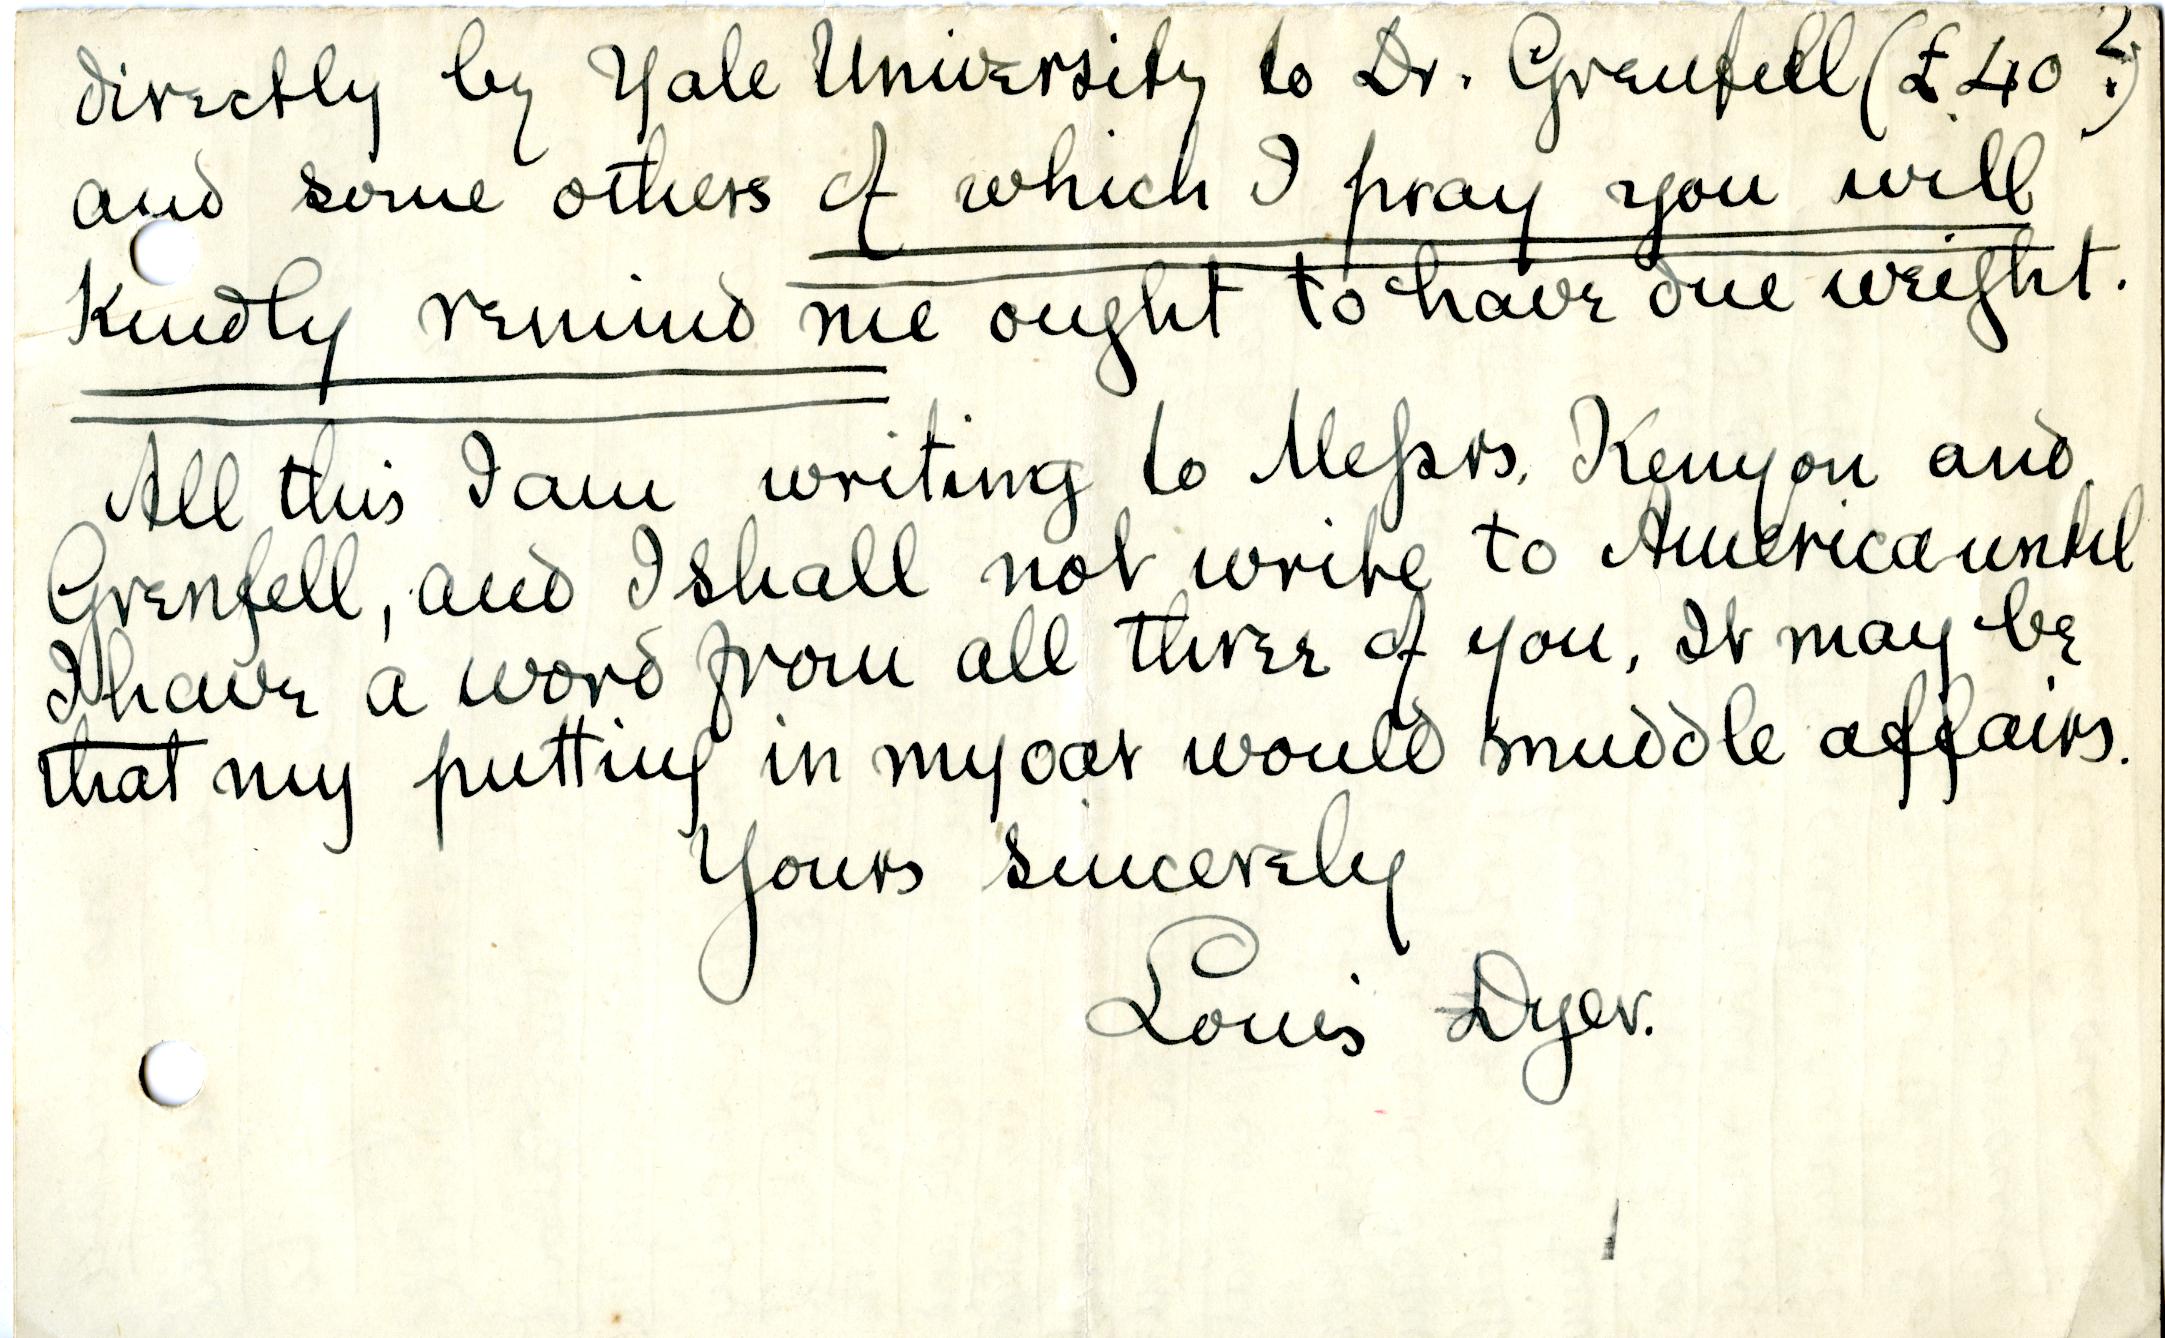 directly by Yale University to Dr. Grenfell (£40?)
and some others of which I pray you will
Kindly remind me ought to have due weight.
All this I am writing to Messrs. Kenyon and
Grenfell, and I shall not write to America until
I have a word from all three of you. It may be
that my putting in my oar would muddle affairs.
Yours sincerely
Louis Dyer.